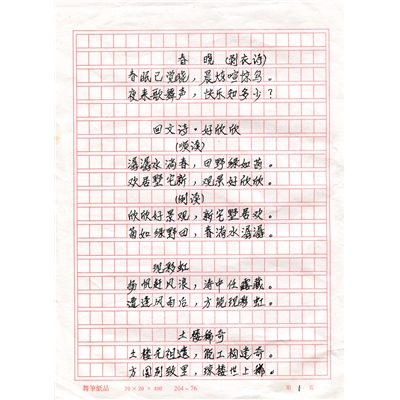 春 晓 (剥衣诗)
春眠已觉晓，晨炮喧惊鸟。
夜来歌舞声，快乐知多少？
回文诗·好欣欣
(顺读)
潺潺水满春，田野绿如茵。
欢居墅宅新，观景好欣欣。
(倒读)
欣欣好景观，新宅墅居欢。
茵如绿野田，春满水潺潺。
现彩虹
扬帆赶风浪，涛中任露藏。
遭逢风雨后，方能现彩虹。
土楼稀奇
土楼先祖遗，能工构造奇。
方圆别致里，综楼世上稀。
舞笔纸品 20×20=400 204-76 第 1 页